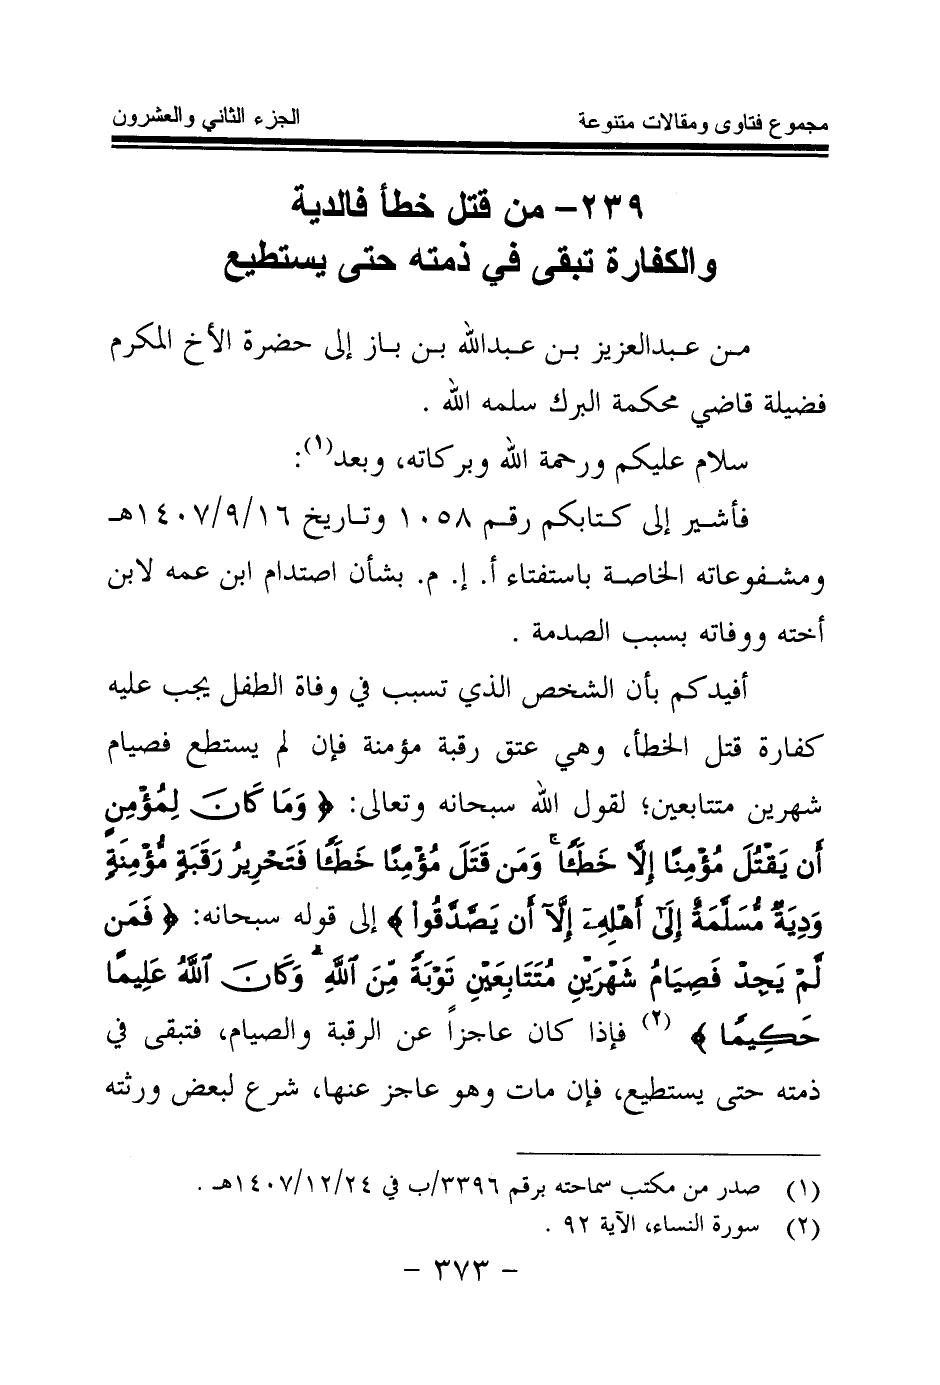 مجموع فتاوى ومقالات متنوعة الجزء الثاني والعشرون
٢٣٩- من قتل خطأ فالدية
والكفارة تبقى في ذمته حتى يستطيع
من عبدالعزيز بن عبدالله بن باز إلى حضرة الأخ المكرم
فضيلة قاضي محكمة البرك سلمه الله .
سلام عليكم ورحمة الله وبركاته، وبعد(١):
فأشير إلى كتابكم رقم ١٠٥٨ وتاريخ ١٤٠٧/٩/١٦هـ
ومشفوعاته الخاصة باستفتاء أ. إ. م. بشأن اصتدام ابن عمه لابن
أخته ووفاته بسبب الصدمة .
أفيدكم بأن الشخص الذي تسبب في وفاة الطفل يجب عليه
كفارة قتل الخطأ، وهي عتق رقبة مؤمنة فإن لم يستطع فصيام
شهرين متتابعين؛ لقول الله سبحانه وتعالى: ﴿ وَمَا كَانَ لِمُؤْمِنٍ
أَن يَقْتُلَ مُؤْمِنًا إِلَّا خَطَـًٔا ۚ وَمَن قَتَلَ مُؤْمِنًا خَطَـًٔا فَتَحْرِيرُ رَقَبَةٍ مُّؤْمِنَةٍ
وَدِيَةٌ مُّسَلَّمَةٌ إِلَىٰٓ أَهْلِهِۦٓ إِلَّآ أَن يَصَّدَّقُوا۟ ﴾ إلى قوله سبحانه: ﴿ فَمَن
لَّمْ يَجِدْ فَصِيَامُ شَهْرَيْنِ مُتَتَابِعَيْنِ تَوْبَةً مِّنَ ٱللَّهِ ۗ وَكَانَ ٱللَّهُ عَلِيمًا
حَكِيمًا ﴾ (٢) فإذا كان عاجزاً عن الرقبة والصيام، فتبقى في
ذمته حتى يستطيع، فإن مات وهو عاجز عنها، شرع لبعض ورثته
(١) صدر من مكتب سماحته برقم ٣٣٩٦/ب في ١٤٠٧/١٢/٢٤هـ .
(٢) سورة النساء، الآية ٩٢ .
- ٣٧٣ -